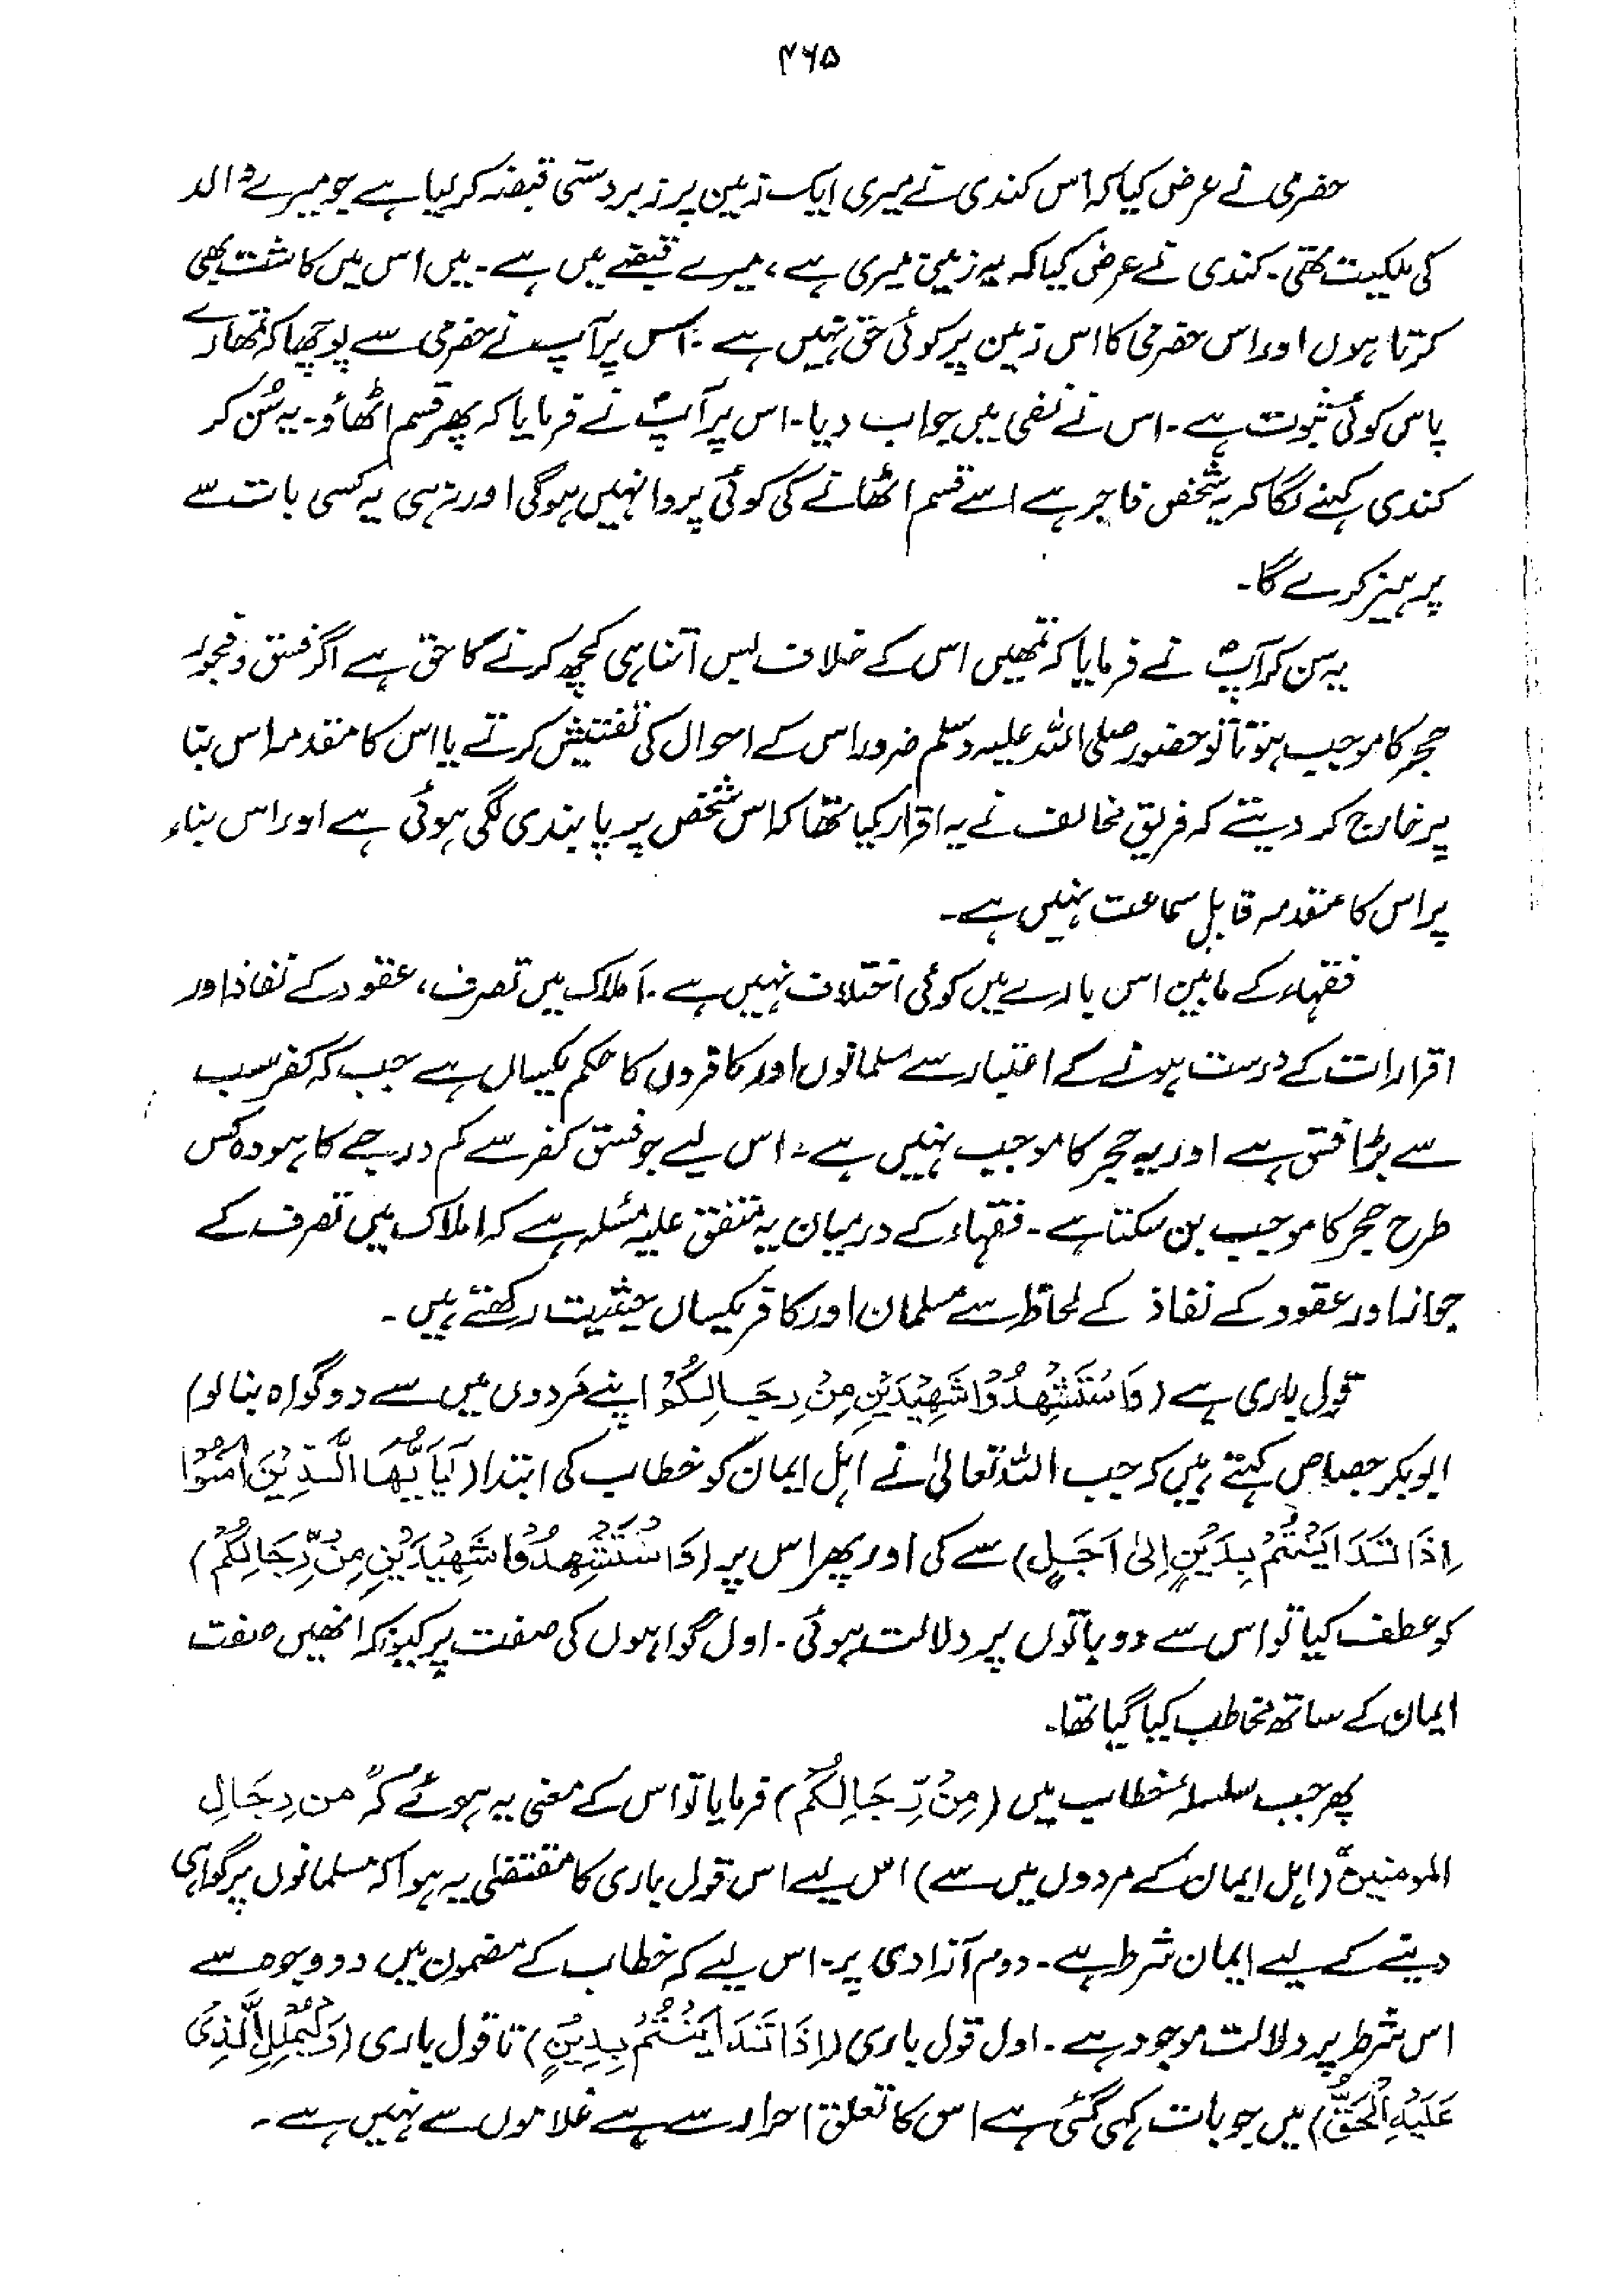 ۴۶۵
حضرمی نے عرض کیا کہ اس کندی نے میری ایک زمین پر زبردستی قبضہ کر لیا ہے جو میرے والد
کی ملکیت تھی۔ کندی نے عرض کیا کہ یہ زمین میری ہے، میرے قبضے میں ہے۔ میں اس میں کاشت بھی
کرتا ہوں اور اس حضرمی کا اس زمین پر کوئی حق نہیں ہے۔ اس پر آپ نے حضرمی سے پوچھا کہ تمھارے
پاس کوئی ثبوت ہے۔ اس نے نفی میں جواب دیا۔ اس پر آپؐ نے فرمایا کہ پھر قسم اٹھاؤ۔ یہ سُن کر
کندی کہنے لگا کہ یہ شخص فاجر ہے اسے قسم اٹھانے کی کوئی پروا نہیں ہو گی اور نہ ہی یہ کسی بات سے
پرہیز کرے گا۔
یہ سن کر آپؐ نے فرمایا کہ تمھیں اس کے خلاف بس اتنا ہی کچھ کرنے کا حق ہے اگر فسق و فجور
حجر کا موجب ہوتا تو حضور صلی اللہ علیہ وسلم ضرور اس کے احوال کی تفتیش کرتے یا اس کا مقدمہ اس بنا
پر خارج کر دیتے کہ فریق مخالف نے یہ اقرار کیا تھا کہ اس شخص پر پابندی لگی ہوئی ہے اور اس بناء
پر اس کا مقدمہ قابل سماعت نہیں ہے۔
فقہاء کے مابین اس بارے میں کوئی اختلاف نہیں ہے۔ املاک میں تصرف، عقود کے نفاذ اور
اقرارات کے درست ہونے کے اعتبار سے مسلمانوں اور کافروں کا حکم یکساں ہے جب کہ کفر سب
سے بڑا فسق ہے اور یہ حجر کا موجب نہیں ہے۔ اس لیے جو فسق کفر سے کم درجے کا ہو وہ کس
طرح حجر کا موجب بن سکتا ہے۔ فقہاء کے درمیان یہ متفق علیہ مسئلہ ہے کہ املاک میں تصرف کے
جواز اور عقود کے نفاذ کے لحاظ سے مسلمان اور کافر یکساں حیثیت رکھتے ہیں۔
قول باری ہے (وَاسْتَشْهِدُوْا شَهِيْدَيْنِ مِنْ رِجَالِكُمْ اپنے مردوں میں سے دو گواہ بنا لو)
ابوبکر جصاص کہتے ہیں کہ جب اللہ تعالیٰ نے اہل ایمان کو خطاب کی ابتدا (يَآ اَيُّهَا الَّذِيْنَ اٰمَنُوْا
اِذَا تَدَايَنْتُمْ بِدَيْنٍ اِلٰى اَجَلٍ) سے کی اور پھر اس پر (وَاسْتَشْهِدُوْا شَهِيْدَيْنِ مِنْ رِّجَالِكُمْ)
کو عطف کیا تو اس سے دو باتوں پر دلالت ہوئی۔ اول گواہوں کی صفت پر کیونکہ انھیں صفت
ایمان کے ساتھ مخاطب کیا گیا تھا۔
پھر جب سلسلۂ خطاب میں (مِنْ رِّجَالِكُمْ) فرمایا تو اس کے معنی یہ ہوئے کہ "من رِجَالِ
المومنین" (اہل ایمان کے مردوں میں سے) اس لیے اس قول باری کا مقتضٰی یہ ہوا کہ مسلمانوں پر گواہی
دینے کے لیے ایمان شرط ہے۔ دوم آزادی پر۔ اس لیے کہ خطاب کے مضمون میں دو وجوہ سے
اس شرط پر دلالت موجود ہے۔ اول قول باری (اِذَا تَدَايَنْتُمْ بِدَيْنٍ) تا قول باری (وَلْيُمْلِلِ الَّذِىْ
عَلَيْهِ الْحَقُّ) میں جو بات کہی گئی ہے اس کا تعلق احرار سے ہے غلاموں سے نہیں ہے۔